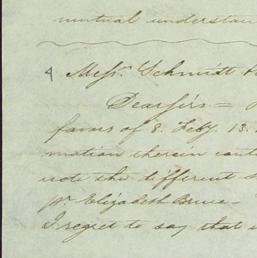 mutual understan
4 Messrs. Schmidt
Dear Sirs =
favors of 8. Feby. 13.
motion therein cont
note the different s
pr Elizabeth Bruce -
I regret to say that